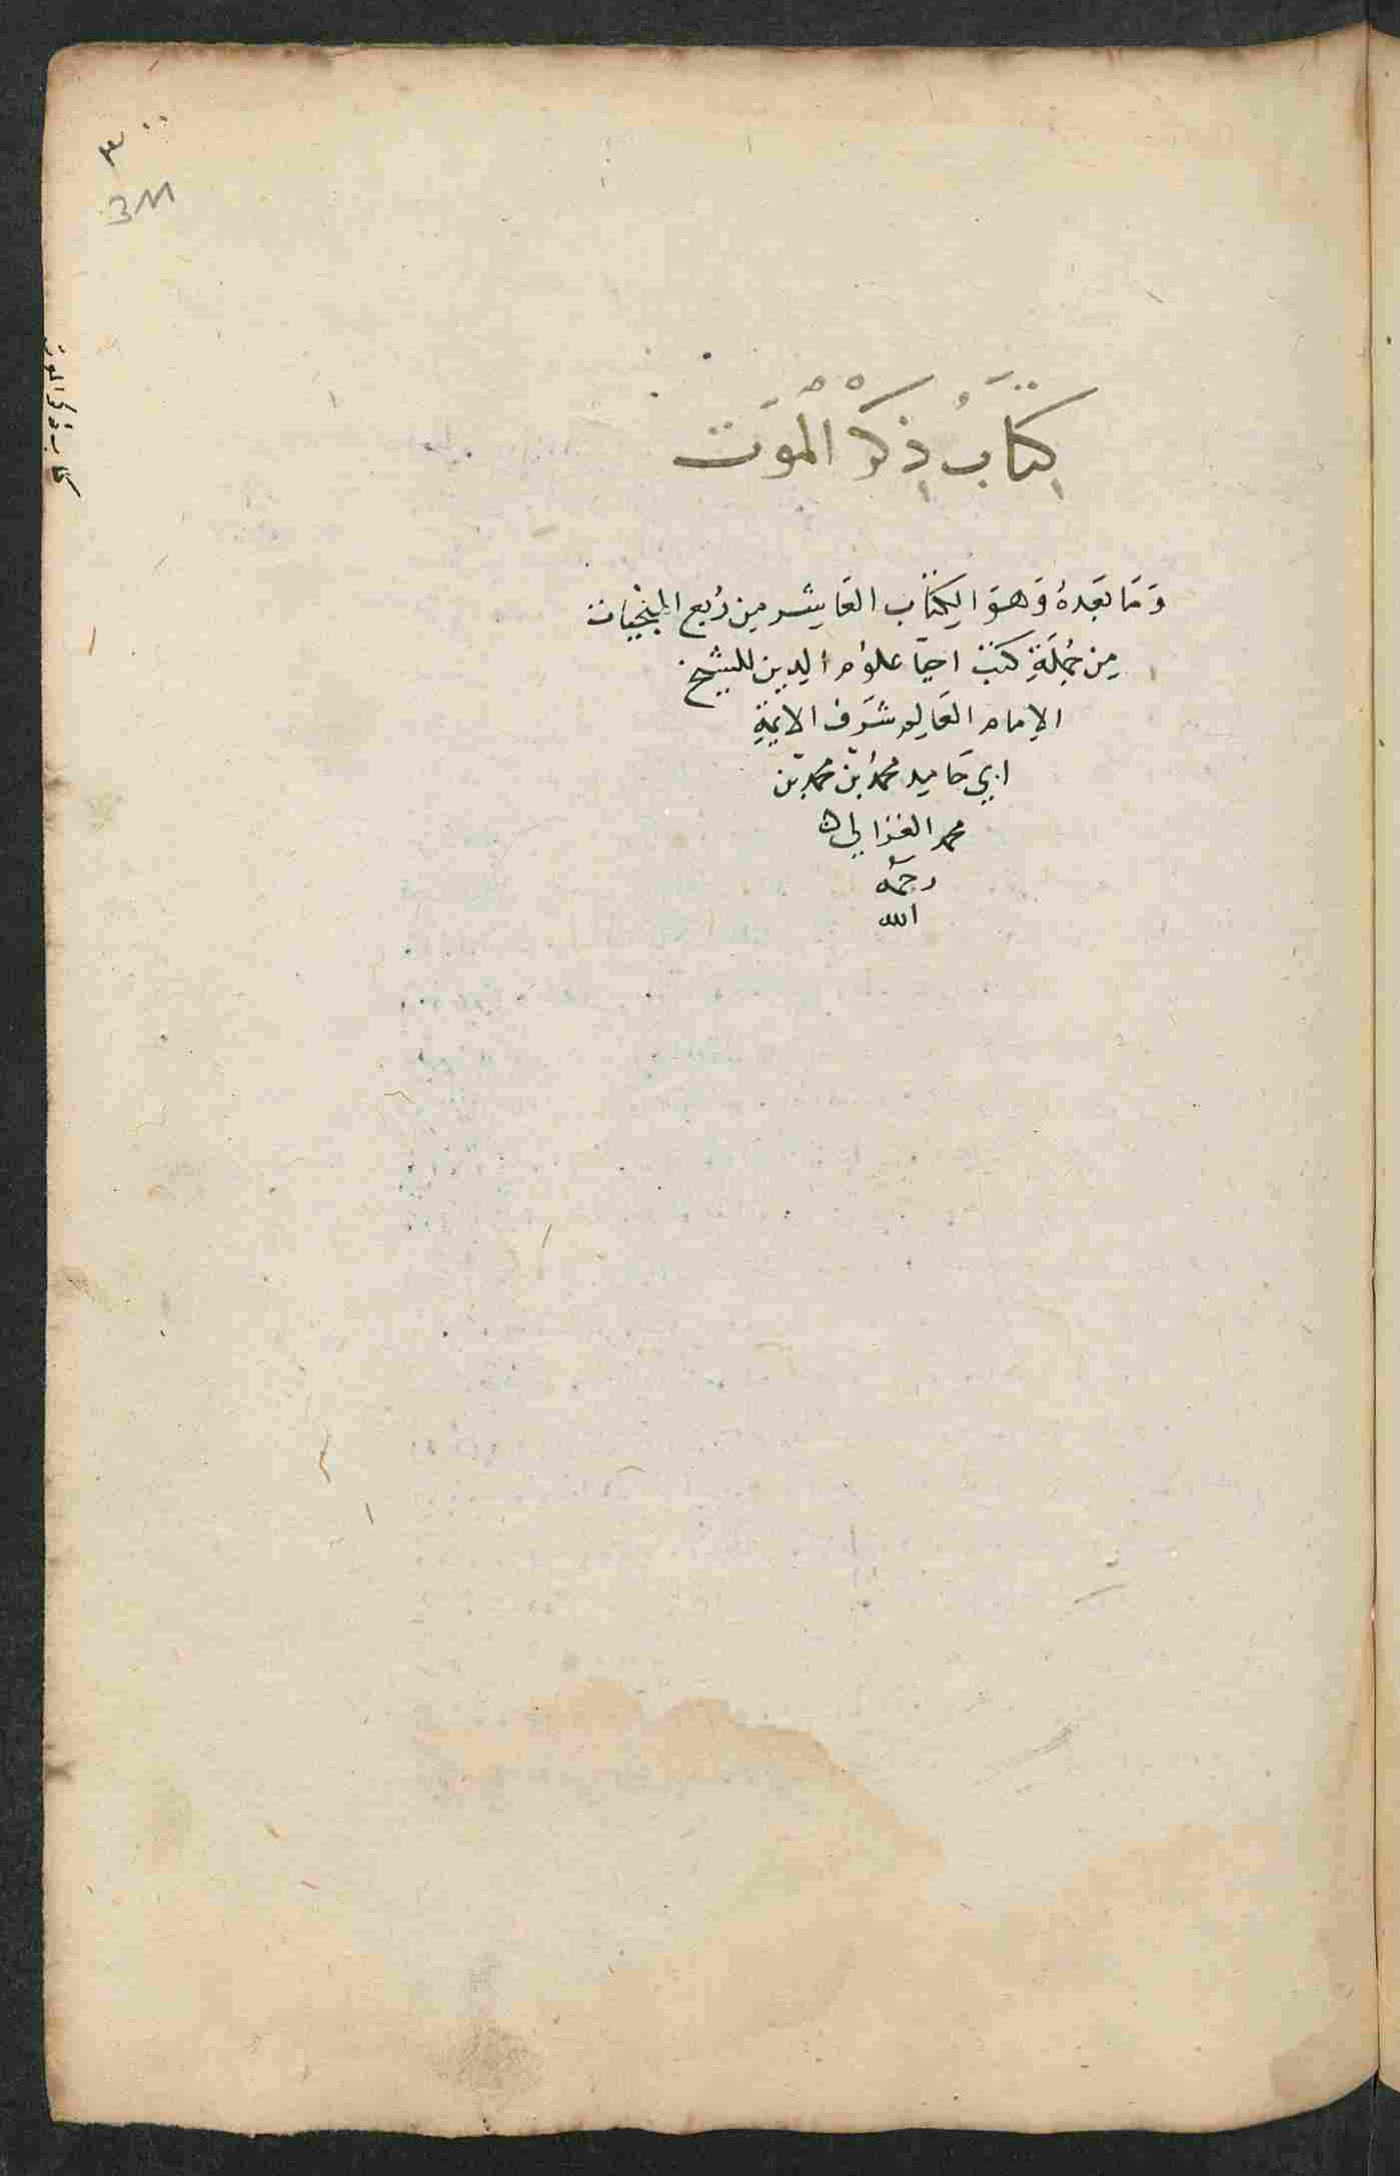 كِتَابُ ذِكْرُ الْمَوْت
وَمَا بَعْدهُ وَهوَ الِكتَاب العَاشِر مِن رُبع المنْجِيَات
مِن جُملَةِ كتُب احيَآ علوُم الدِين للشيخ
الإمام العَالِم شَرَف الايمةِ
ابي حَامِد محمدُ بّن محمد بّن
محمد الغزالي ه
رحمهُ
الله
كتاب ذكر الموت